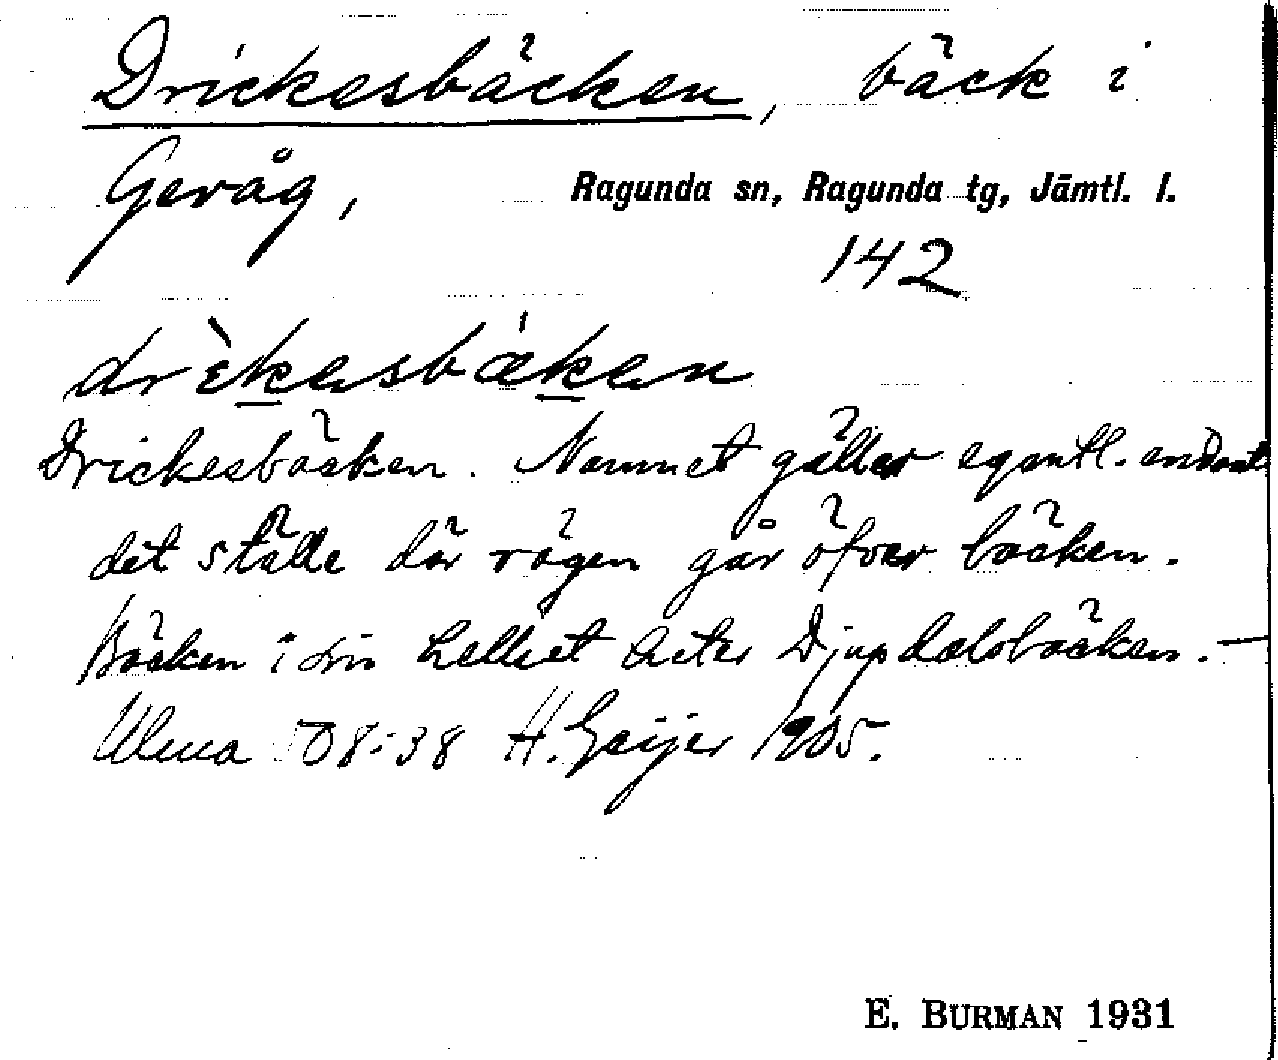 Drickesbäcken, bäck i
Geråg, Ragunda sn, Ragunda tg, Jämtl. l.
142
drèkesbæken
Drickesbäcken. Namnet gäller egentl. endast
det ställe där vägen går öfver bäcken.
Bäcken i sin helhet heter Djupdalsbäcken. —
Ulma 508:38 H. Geijer 1905.
E. BURMAN 1931